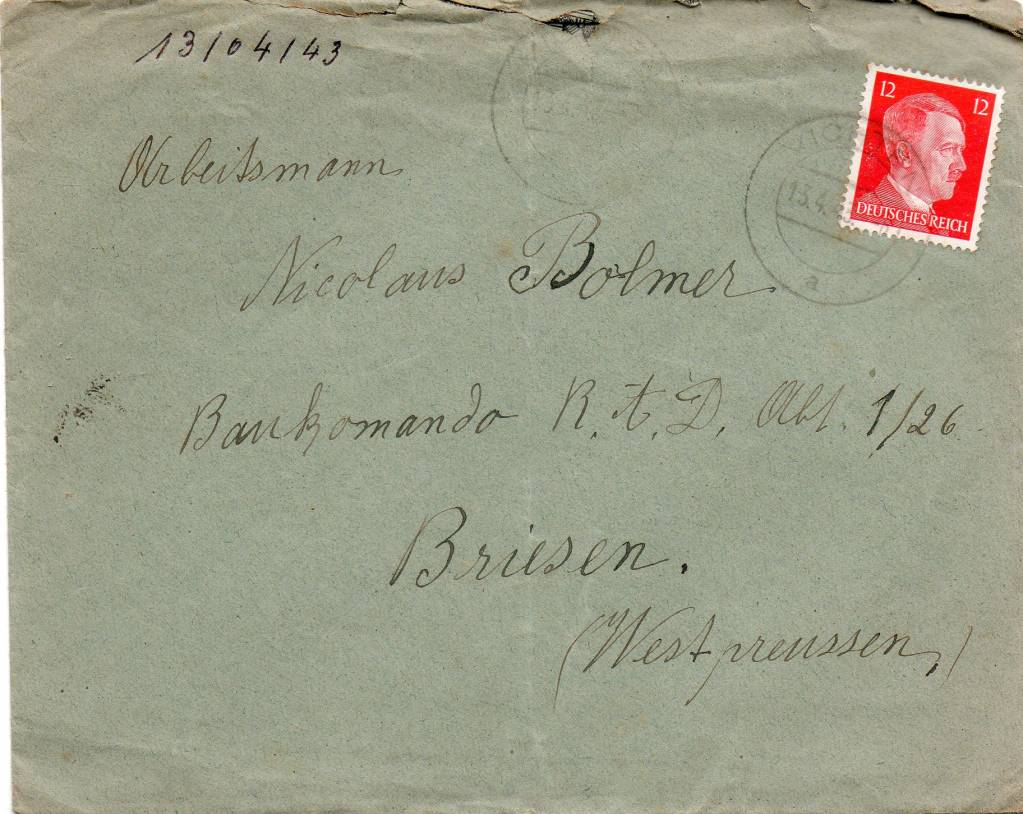 13/04/43
12 12
DEUTSCHES REICH
13.4.
a
Arbeitsmann
Nicolaus Bolmer
Baukomando R.A.D. Abt. 1/26
Briesen.
(Westpreussen,)